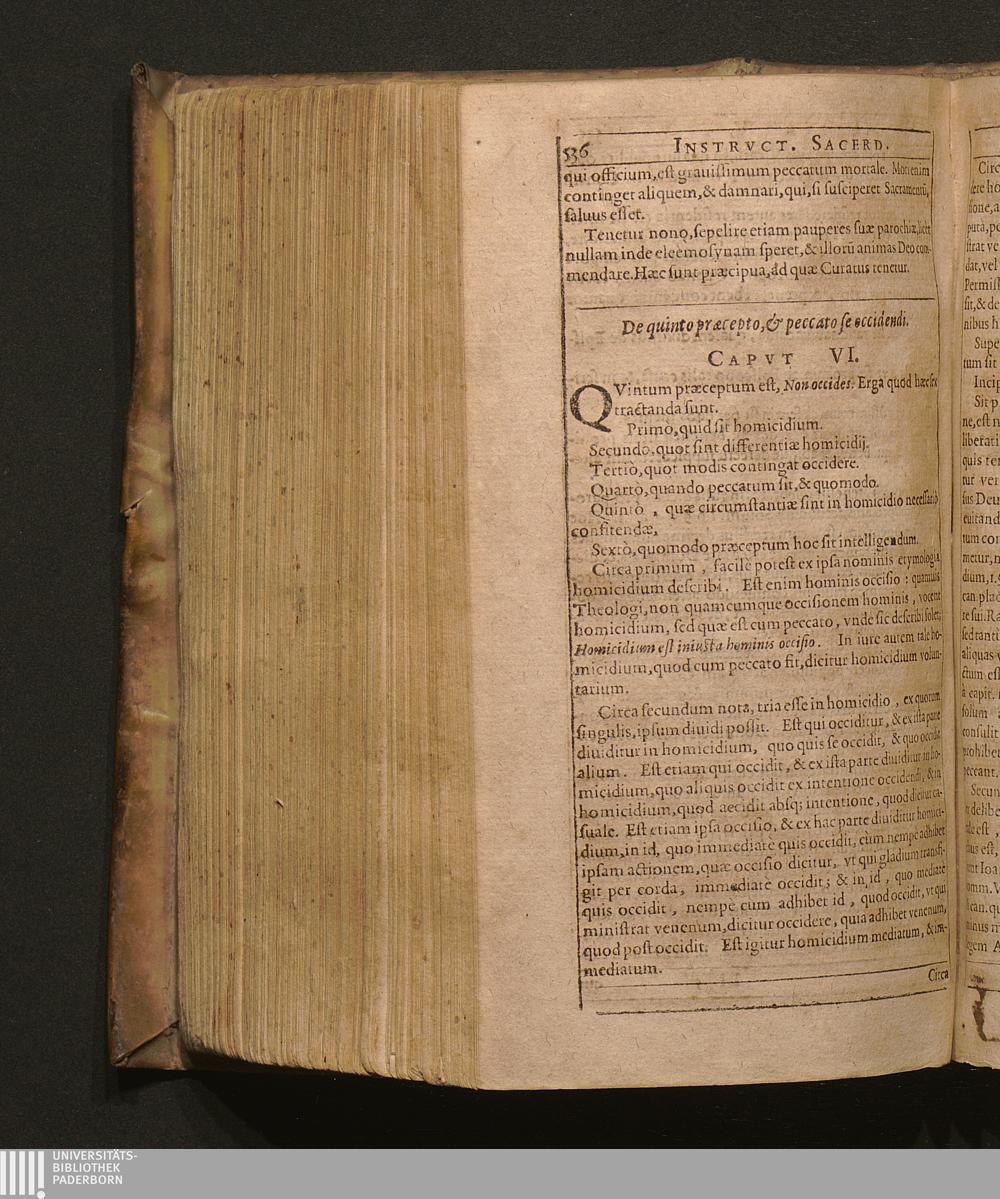 536 INSTRVCT. SACERD.
qui officium, est grauissimum peccatum mortale. Mori enim
continget aliquem, & damnari, qui, si susciperet Sacramentũ,
saluus esset.
Tenetur nonò, sepelire etiam pauperes suæ parochiæ, licèt
nullam inde eleemosynam speret, & illorũ animas Deo com-
mendare. Hæc sunt præcipua, ad quæ Curatus tenetur.
De quinto præcepto, & peccato se occidendi.
CAPVT VI.
QVintum præceptum est, Non occides. Erga quod hæc sex
tractanda sunt.
Primò, quid sit homicidium.
Secundò, quot sint differentiæ homicidij.
Tertiò, quot modis contingat occidere.
Quartò, quando peccatum sit, & quomodo.
Quintò, quæ circumstantiæ sint in homicidio necessariò
confitendæ.
Sextò, quomodo præceptum hoc sit intelligendum.
Circa primum, facilè potest ex ipsa nominis etymologia
homicidium describi. Est enim hominis occisio: quamuis
Theologi, non quamcumque occisionem hominis, vocent
homicidium, sed quæ est cum peccato, vnde sic describi solet;
Homicidium est iniusta hominis occisio. In iure autem tale ho-
micidium, quod cum peccato fit, dicitur homicidium volun-
tarium.
Circa secundum nota, tria esse in homicidio, ex quorum
singulis, ipsum diuidi possit. Est qui occiditur, & ex ista parte
diuiditur in homicidium, quo quis se occidit, & quo occidit
alium. Est etiam qui occidit, & ex ista parte diuiditur in ho-
micidium, quo aliquis occidit ex intentione occidendi, & in
homicidium, quod accidit absq; intentione, quod dicitur ca-
suale. Est etiam ipsa occisio, & ex hac parte diuiditur homici-
dium, in id, quo immediatè quis occidit, cùm nempe adhibet
ipsam actionem, quæ occisio dicitur, vt qui gladium transfi-
git per corda, immediatè occidit; & in id, quo mediatè
quis occidit, nempè cum adhibet id, quod occidit, vt qui
ministrat venenum, dicitur occidere, quia adhibet venenum,
quod post occidit. Est igitur homicidium mediatum, & im-
mediatum.
Circa
UNIVERSITÄTS-
BIBLIOTHEK
PADERBORN